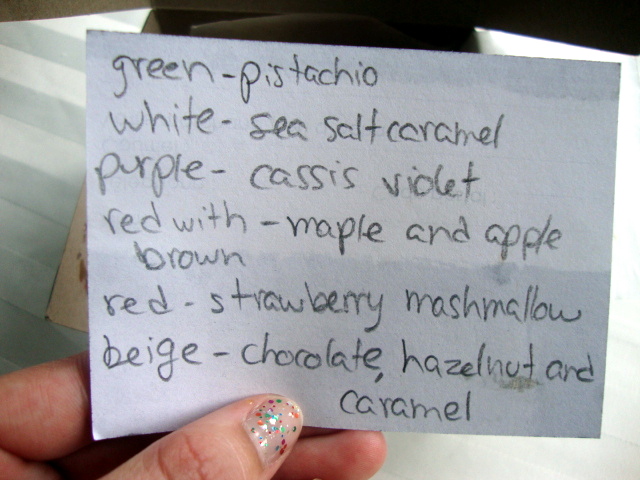 green - pistachio
white - sea salt caramel
purple - cassis violet
red with - maple and apple
brown
red - strawberry mashmallow
beige - chocolate, hazelnut and
caramel